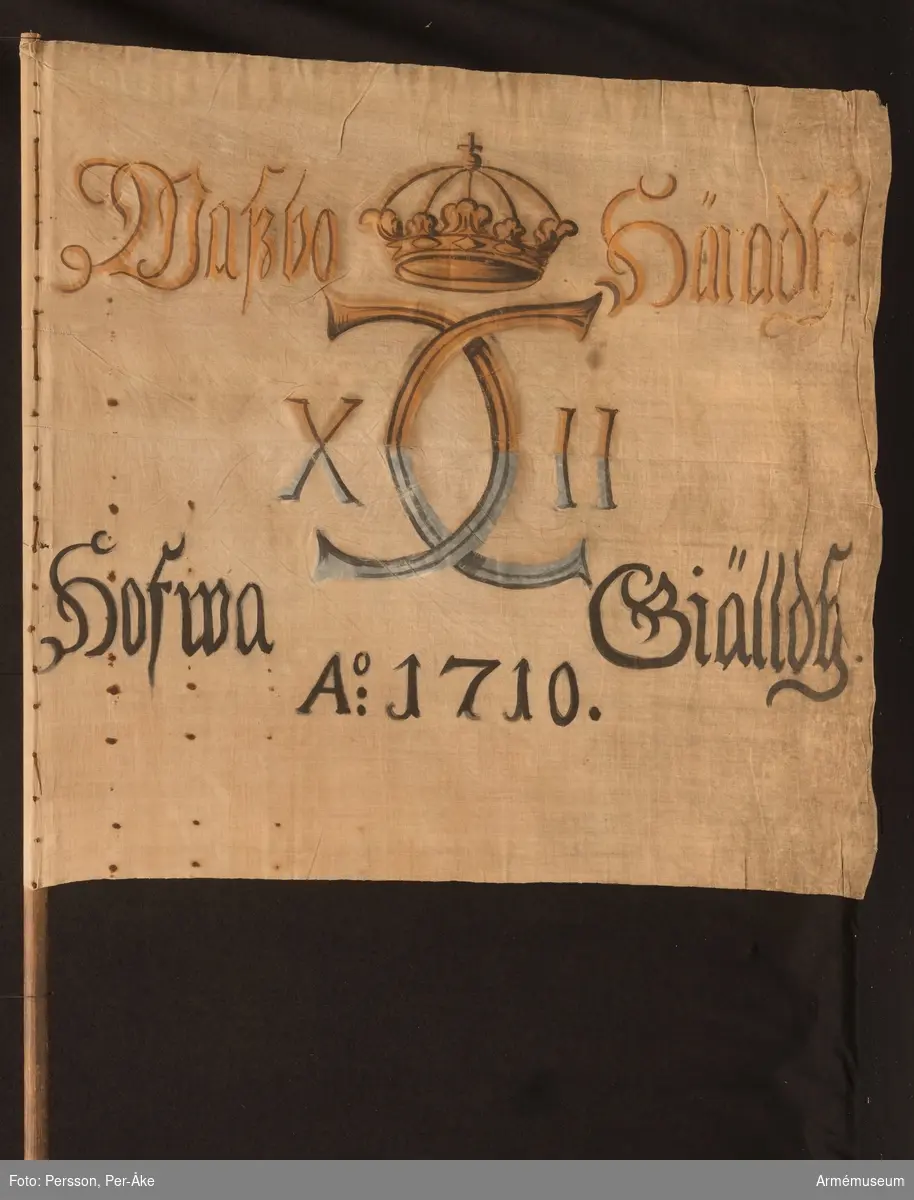 Waßbo Häradh
X CC II
Hofwa Giälldh.
Ao: 1710.
Foto: Persson, Per-Åke Armémuseum